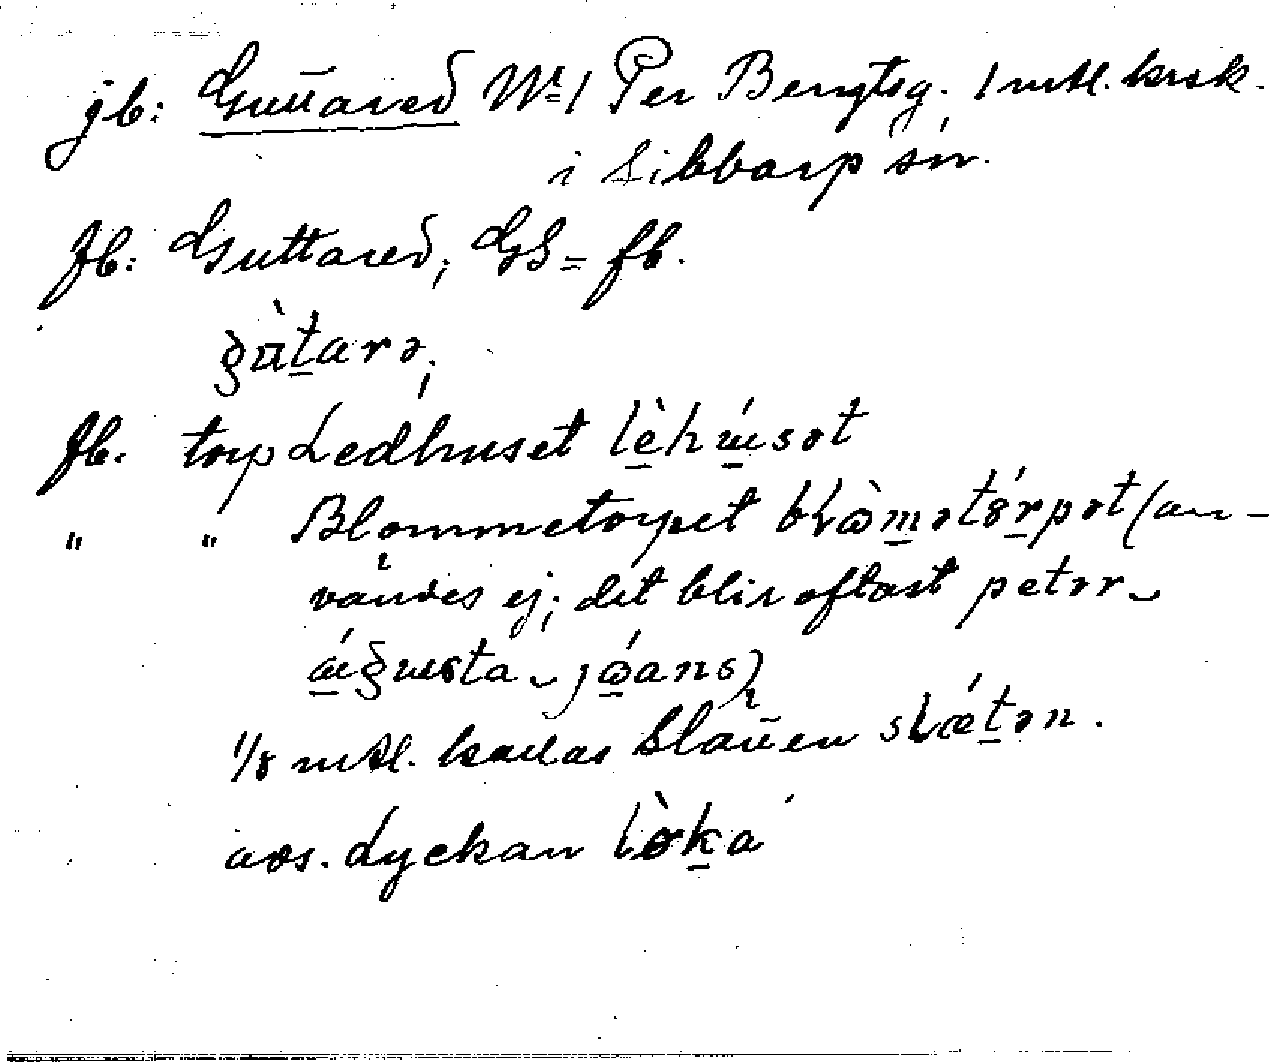 jb: Guttared Nr 1 Per Bengtsg. 1 mtl. krsk.
i Sibbarp sn.
fb: Guttared; GS = fb.
gùtarə;
fb. torp Ledhuset lèhúsət
" " Blommetorpet blòmətórpət (an-
vändes ej; det blir oftast petər
áugusta jóans)
1/8 mtl. kallas Slätten slǽtən.
avs. Lyckan lòka